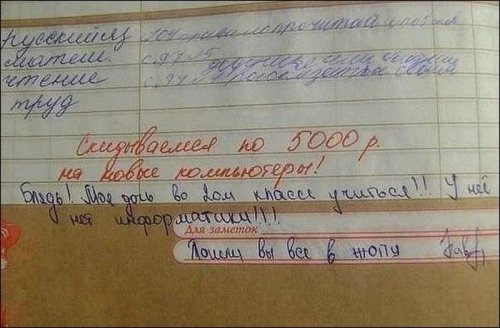 русский яз
матем. с. 97 15
чтение
труд
Скидываемся по 5000 р.
на новые компьютеры!
Блядь! Моя дочь во 2ом классе учиться!! У неё
нет информатики!!!
Для заметок
Пошли вы все в жопу